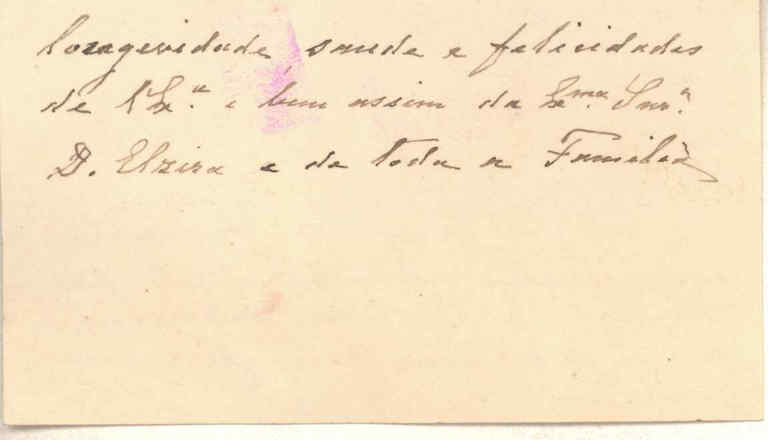 longevidade, saude e felicidades
de V Ex.ª e bem assim da Ex.ma Snr.ª
D. Elzira e de toda a Familia